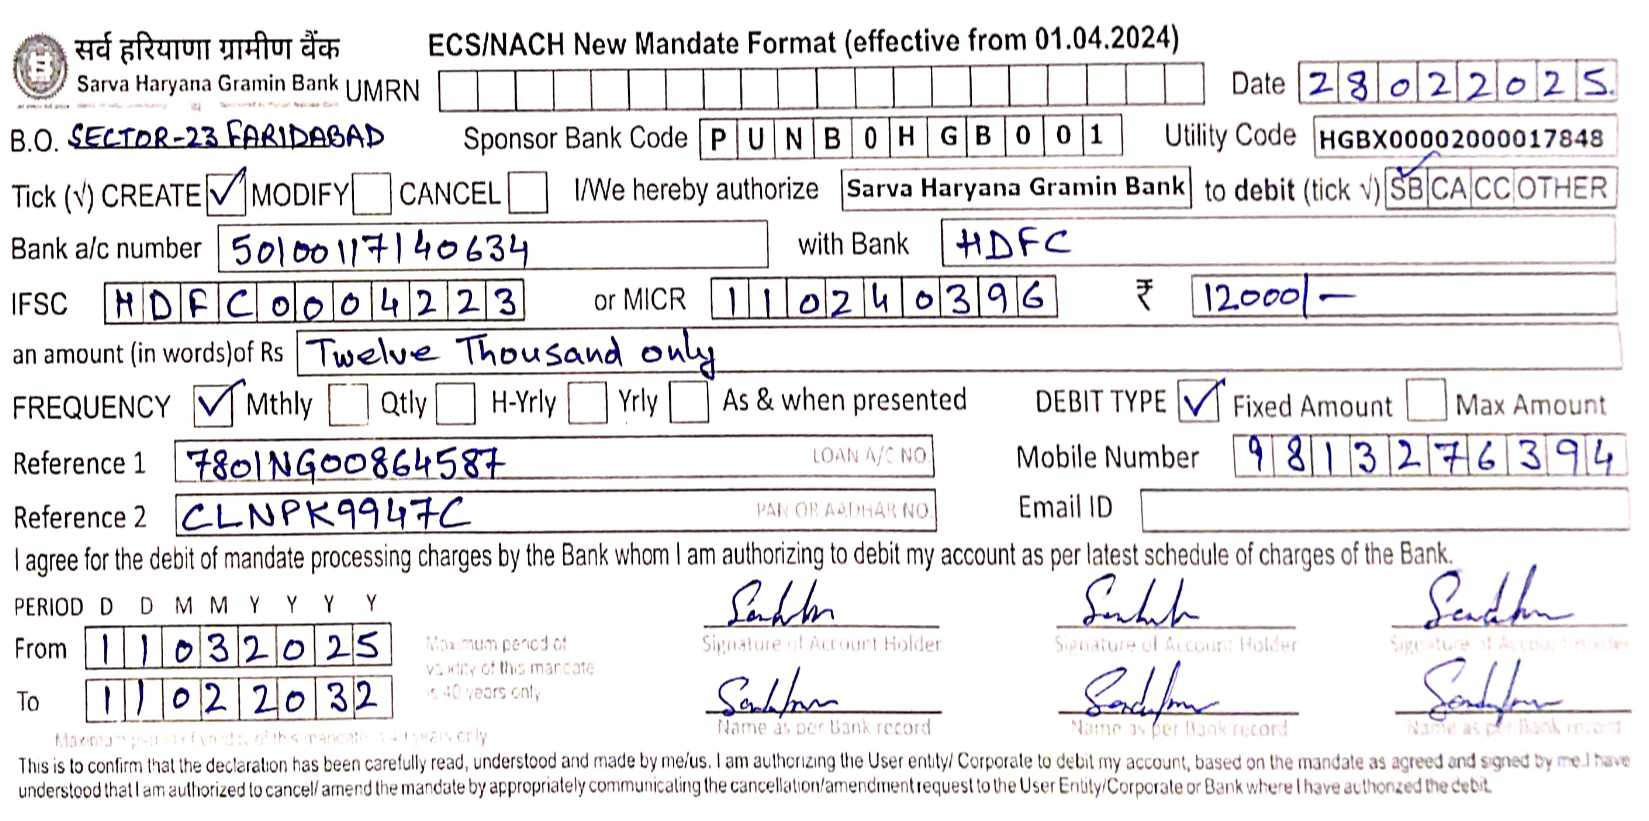 सर्व हरियाणा ग्रामीण बैंक
Sarva Haryana Gramin Bank
ECS/NACH New Mandate Format (effective from 01.04.2024)
UMRN
Date 28022025
B.O. SECTOR-23 FARIDABAD Sponsor Bank Code PUNB0HGB001 Utility Code HGBX00002000017848
Tick (√) CREATE ✓ MODIFY CANCEL I/We hereby authorize Sarva Haryana Gramin Bank to debit (tick √) SB ✓ CA CC OTHER
Bank a/c number 50100117140634 with Bank HDFC
IFSC HDFC0004223 or MICR 110240396 ₹ 12000/-
an amount (in words)of Rs Twelve Thousand only
FREQUENCY ✓ Mthly Qtly H-Yrly Yrly As & when presented DEBIT TYPE ✓ Fixed Amount Max Amount
Reference 1 7801NG00864587 LOAN A/C NO. Mobile Number 9813276394
Reference 2 CLNPK9947C PAN OR AADHAR NO. Email ID
I agree for the debit of mandate processing charges by the Bank whom I am authorizing to debit my account as per latest schedule of charges of the Bank.
PERIOD D D M M Y Y Y Y
From 11032025
Maximum period of
validity of this mandate
is 40 years only
Signature of Account Holder Signature of Account Holder Signature of Account Holder
To 11022032
Name as per Bank record Name as per Bank record Name as per Bank record
Maximum period of validity of this mandate is 40 years only
This is to confirm that the declaration has been carefully read, understood and made by me/us. I am authorizing the User entity/ Corporate to debit my account, based on the mandate as agreed and signed by me.I have
understood that I am authorized to cancel/ amend the mandate by appropriately communicating the cancellation/amendment request to the User Entity/Corporate or Bank where I have authorized the debit.